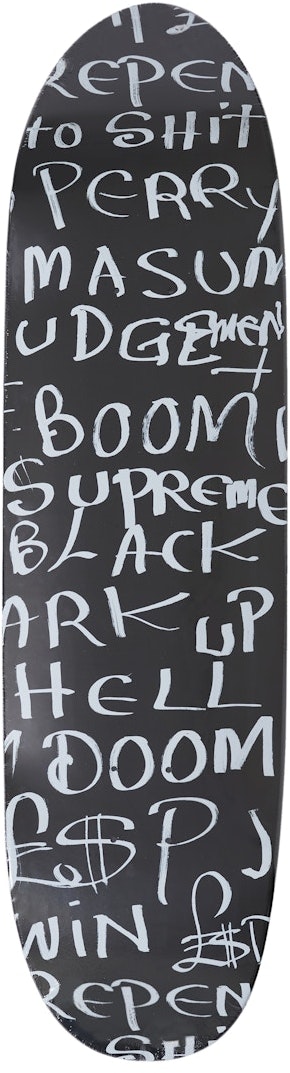 REPEN
to SHiT
PERRY
MASUM
UDGEmEN
+
BOOM
$UPREmE
BLACK
ARK UP
HELL
DOOM
£$P J
WiN £$P
REPEN
SHi